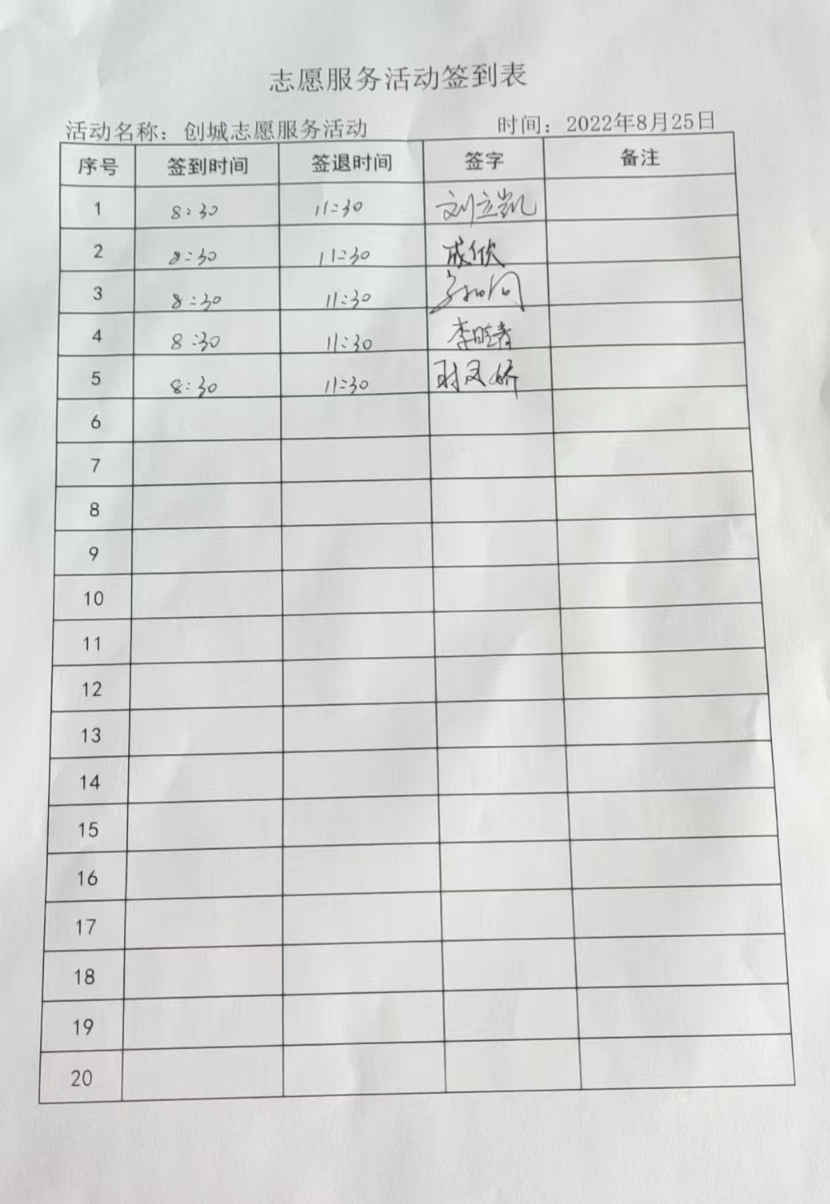 志愿服务活动签到表
活动名称：创城志愿服务活动 时间：2022年8月25日
序号 签到时间 签退时间 签字 备注
1 8:30 11:30 刘立凯
2 8:30 11:30 成欣
3 8:30 11:30
4 8:30 11:30 李晓春
5 8:30 11:30
6
7
8
9
10
11
12
13
14
15
16
17
18
19
20